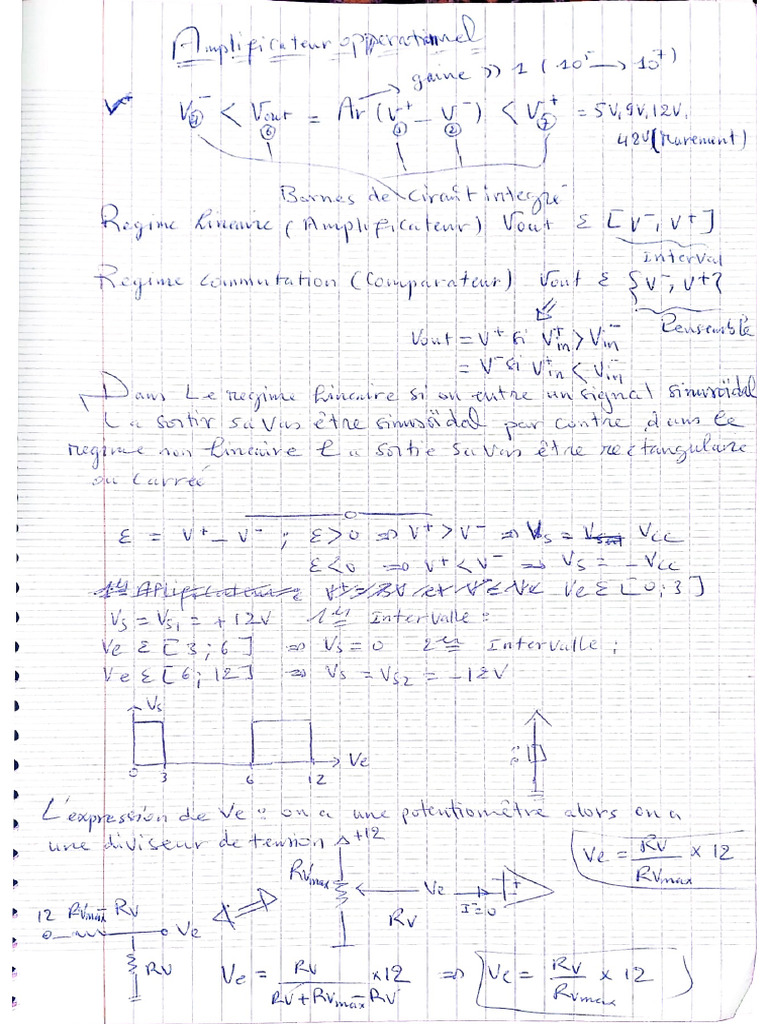 Amplificateur opperationnel
gaine >> 1 (10⁵ → 10⁷)
V⁻ < Vout = Av (V⁺ - V⁻) < V⁺ = 5V, 9V, 12V,
④ ⑥ ① ② ⑦
42V (rarement)
Bornes de circuit integré
Regime lineaire (Amplificateur) Vout ε [V⁻, V⁺]
Interval
Regime commutation (Comparateur) Vout ε {V⁻, V⁺}
l'ensemble
Vout = V⁺ si Vin⁺ > Vin⁻
= V⁻ si Vin⁺ < Vin⁻
Dans Le regime lineaire si on entre un signal sinusoïdal
La sortir sa vas être sinusoïdal par contre dans le
regime non lineaire La sortie sa vas être rectangulaire
ou Carreé
ε = V⁺ - V⁻ ; ε>0 ⇒ V⁺ > V⁻ ⇒ Vs = Vcc
ε<0 ⇒ V⁺ < V⁻ ⇒ Vs = -Vcc
Ve ε [0; 3]
Vs = Vs1 = +12V 1er Intervalle :
Ve ε [3; 6] ⇒ Vs = 0 2er Intervalle ;
Ve ε [6; 12] ⇒ Vs = Vs2 = -12V
Vs
Ve
0 3 6 12
L'expression de Ve : on a une potentiomètre alors on a
une diviseur de tension +12
Ve = RV/RVmax × 12
RVmax Ve I=0 +
RV
12 RVmax-RV Ve
RV
Ve = RV/(RV+RVmax-RV) × 12 ⇒ Ve = RV/RVmax × 12